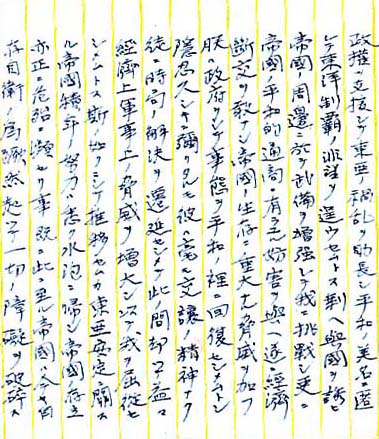 政権ヲ支援シテ東亞ノ禍乱ヲ助長シ平和ノ美名ニ匿
レテ東洋制覇ノ非望ヲ逞ウセムトス剰ヘ與國ヲ誘ヒ
帝國ノ周邊ニ於テ武備ヲ増強シテ我ニ挑戰シ更ニ
帝國ノ平和的通商ニ有ラユル妨害ヲ與ヘ遂ニ經濟
斷交ヲ敢テシ帝國ノ生存ニ重大ナル脅威ヲ加フ
朕ハ政府ヲシテ事態ヲ平和ノ裡ニ回復セシメムトシ
隠忍久シキニ彌リタルモ彼ハ毫モ交讓ノ精神ナク
徒ニ時局ノ解決ヲ遷延セシメテ此ノ間却ツテ益々
經濟上軍事上ノ脅威ヲ増大シ以テ我ヲ屈従セ
シメムトス斯ノ如クニシテ推移セムカ東亞安定ニ關ス
ル帝國積年ノ努力ハ悉ク水泡ニ帰シ帝國ノ存立
亦正ニ危殆ニ瀕セリ事既ニ此ニ至ル帝國ハ今ヤ自
存自衛ノ爲蹶然起ツテ一切ノ障礙ヲ破碎ス